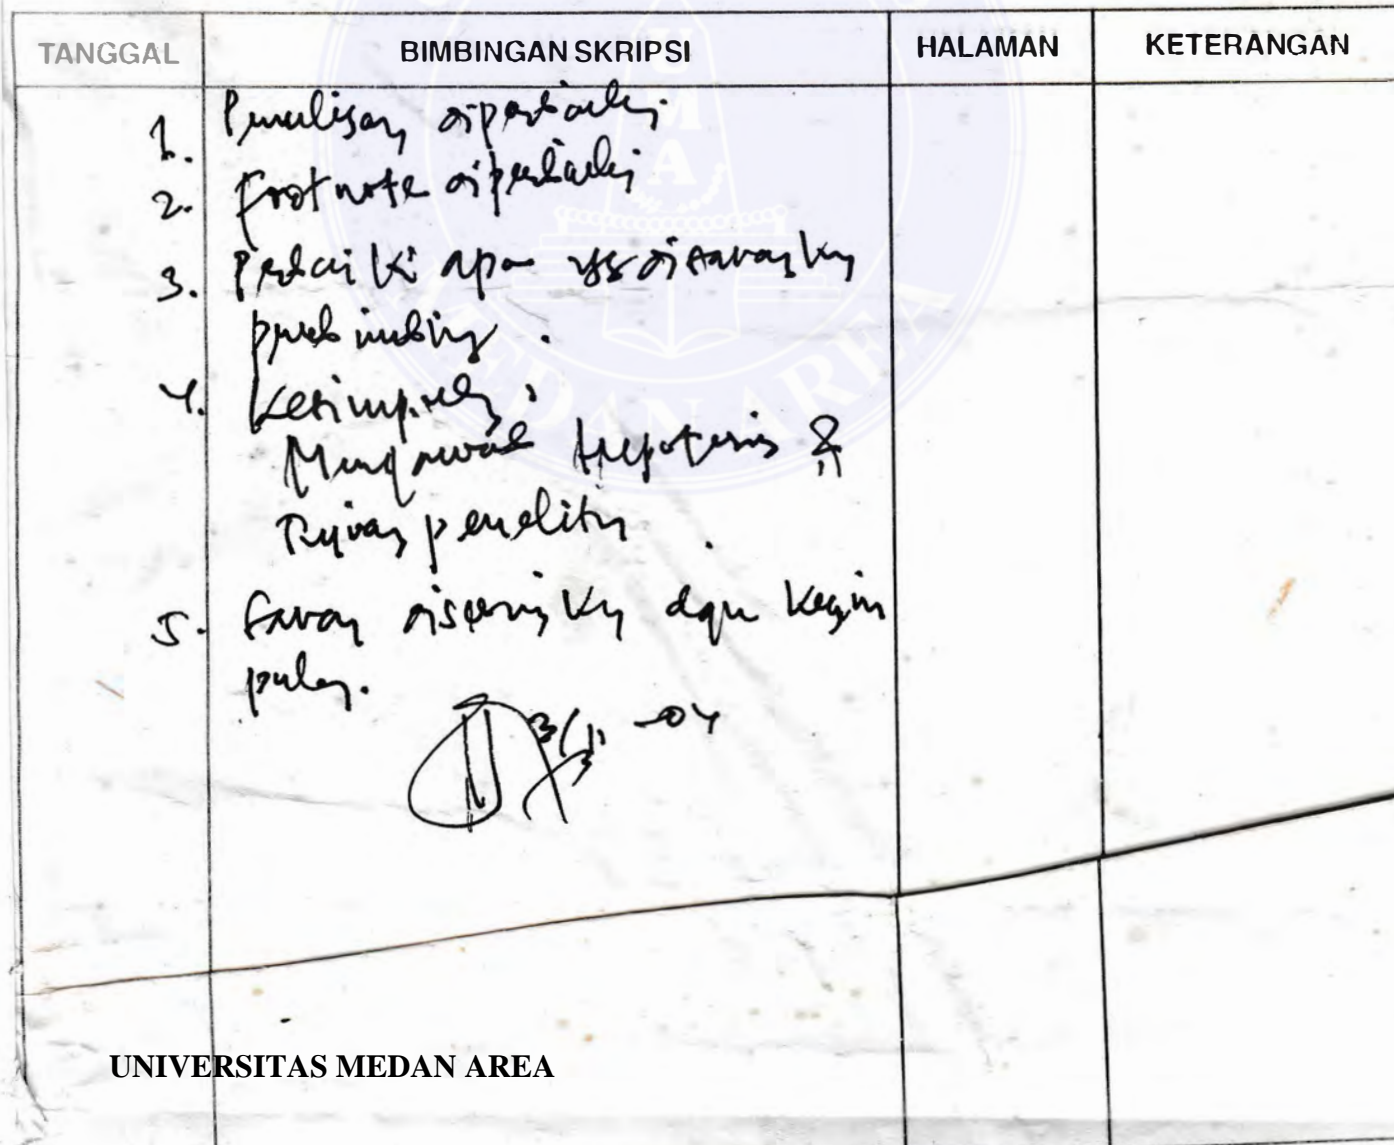 TANGGAL BIMBINGAN SKRIPSI HALAMAN KETERANGAN
1. Penulisan diperbaiki
2. Footnote diperbaiki
3. Perbaiki apa yg disarankan
pembimbing.
4. Kesimpulan,
Menjawab Hipotesis &
Tujuan penelitian.
5. Saran disesuaikan dgn kesim
pulan.
3/11 -04
UMA
MEDAN AREA
UNIVERSITAS MEDAN AREA